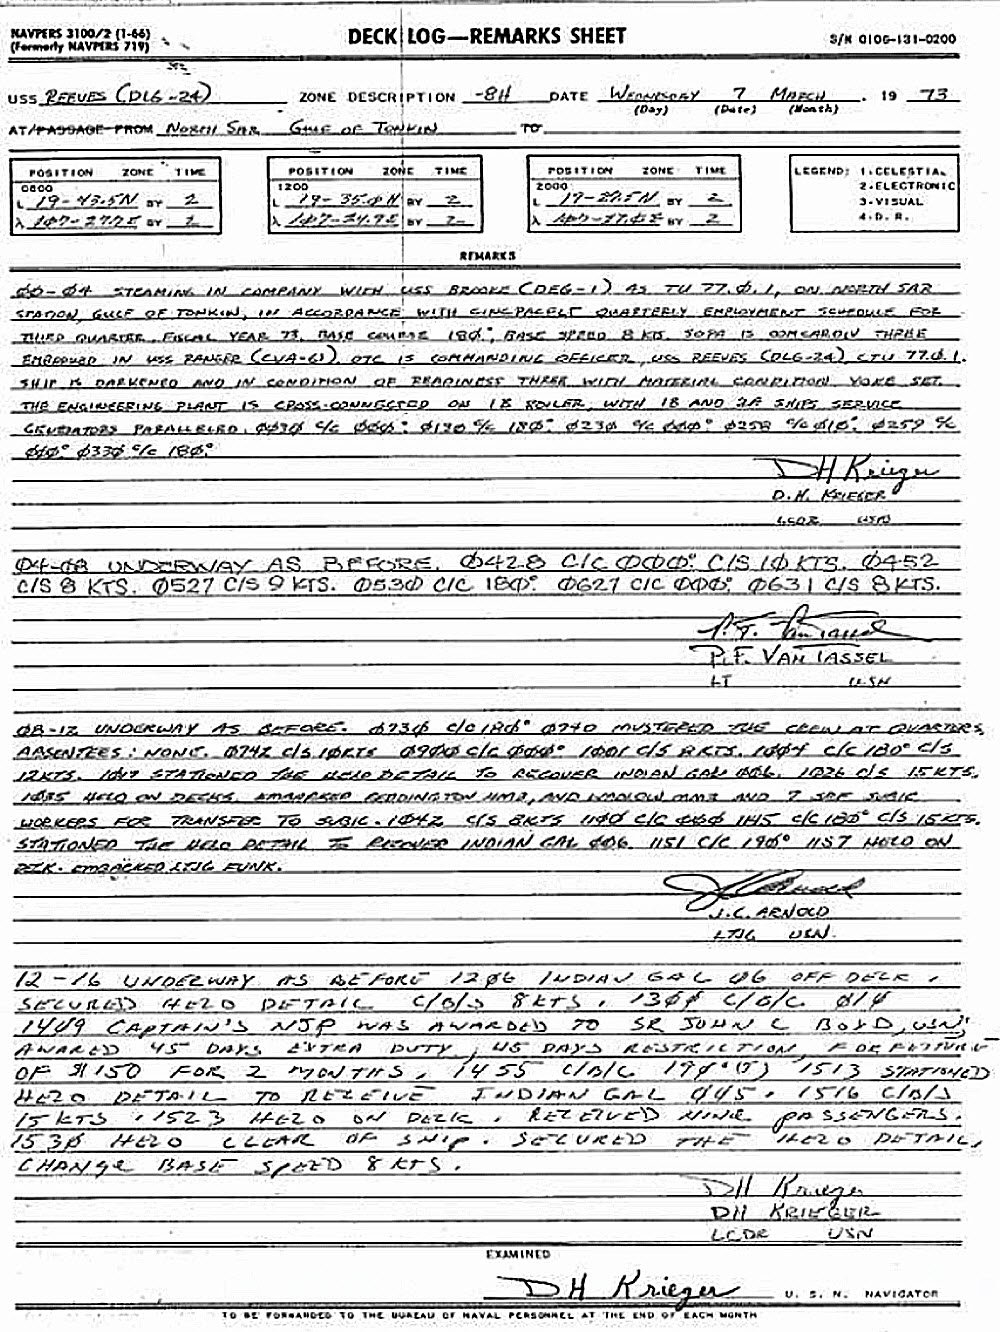 NAVPERS 3100/2 (1-66)
(Formerly NAVPERS 719)
DECK LOG—REMARKS SHEET
S/N 0106-131-0200
USS REEVES (DLG-24) ZONE DESCRIPTION -8H DATE WEDNESDAY 7 MARCH, 19 73
(Day) (Date) (Month)
AT/PASSAGE FROM NORTH SAR GULF OF TONKIN TO
POSITION ZONE TIME
0800
L 19-43.5N BY 2
λ 107-27.7E BY 2
POSITION ZONE TIME
1200
L 19-35.0N BY 2
λ 107-24.9E BY 2
POSITION ZONE TIME
2000
L BY 2
λ BY 2
LEGEND: 1-CELESTIAL
2-ELECTRONIC
3-VISUAL
4-D. R.
REMARKS
ØØ-Ø4 STEAMING IN COMPANY WITH USS BROOKE (DEG-1) AS TU 77.Ø.1, ON NORTH SAR
STATION, GULF OF TONKIN, IN ACCORDANCE WITH CINCPACFLT QUARTERLY EMPLOYMENT SCHEDULE FOR
THIRD QUARTER, FISCAL YEAR 73. BASE COURSE 18Ø°, BASE SPEED 8 KTS. SOPA IS COMCARDIV THREE
EMBARKED IN USS RANGER (CVA-61), OTC IS COMMANDING OFFICER, USS REEVES (DLG-24) CTU 77.Ø.1.
SHIP IS DARKENED AND IN CONDITION OF READINESS THREE WITH MATERIAL CONDITION YOKE SET.
THE ENGINEERING PLANT IS CROSS-CONNECTED ON 1B BOILER, WITH 1B AND 2A SHIPS SERVICE
GENERATORS PARALLELED. ØØ3Ø C/C ØØØ° Ø13Ø C/C 18Ø° Ø23Ø C/C ØØØ° Ø258 C/C Ø1Ø° Ø259 C/C
Ø33Ø C/C 18Ø°
DH Krieger
D.H. KRIEGER
LCDR USN
Ø4-Ø8 UNDERWAY AS BEFORE. Ø428 C/C ØØØ° C/S 1Ø KTS. Ø452
C/S 8 KTS. Ø527 C/S 9 KTS. Ø53Ø C/C 18Ø° Ø627 C/C ØØØ° Ø631 C/S 8 KTS.
P.F. Van Tassel
P.F. VAN TASSEL
LT USN
Ø8-12 UNDERWAY AS BEFORE. Ø73Ø C/C 18Ø° Ø74Ø MUSTERED THE CREW AT QUARTERS,
ABSENTEES: NONE. Ø742 C/S 1Ø KTS Ø9ØØ C/C ØØØ° 1ØØ1 C/S 8 KTS. 1ØØ4 C/C 18Ø° C/S
12 KTS. 1Ø17 STATIONED THE HELO DETAIL TO RECOVER INDIAN GAL ØØ6. 1Ø26 C/S 15 KTS.
1Ø35 HELO ON DECKS. EMBARKED HM2, AND MM3 AND 7 SRF SUBIC
WORKERS FOR TRANSFER TO SUBIC. 1Ø42 C/S 8 KTS 11ØØ C/C ØØØ 1145 C/C 18Ø° C/S 15 KTS.
STATIONED THE HELO DETAIL TO RECOVER INDIAN GAL ØØ6 1151 C/C 19Ø° 1157 HELO ON
DECK. EMBARKED LTJG FUNK.
J.C. Arnold
J.C. ARNOLD
LTJG USN.
12-16 UNDERWAY AS BEFORE 12Ø6 INDIAN GAL Ø6 OFF DECK,
SECURED HELO DETAIL C/B/S 8 KTS, 13ØØ C/B/C Ø1Ø
1449 CAPTAIN'S NJP WAS AWARDED TO SR JOHN C BOYD, USN,
AWARED 45 DAYS EXTRA DUTY, 45 DAYS RESTRICTION, FORFEITURE
OF $150 FOR 2 MONTHS. 1455 C/B/C 17Ø°(T) 1513 STATIONED
HELO DETAIL TO RECEIVE INDIAN GAL 445. 1516 C/B/S
15 KTS. 1523 HELO ON DECK, RECEIVED NINE PASSENGERS.
153Ø HELO CLEAR OF SHIP. SECURED THE HELO DETAIL,
CHANGE BASE SPEED 8 KTS.
DH Krieger
DH KRIEGER
LCDR USN
EXAMINED
DH Krieger U. S. N. NAVIGATOR
TO BE FORWARDED TO THE BUREAU OF NAVAL PERSONNEL AT THE END OF EACH MONTH